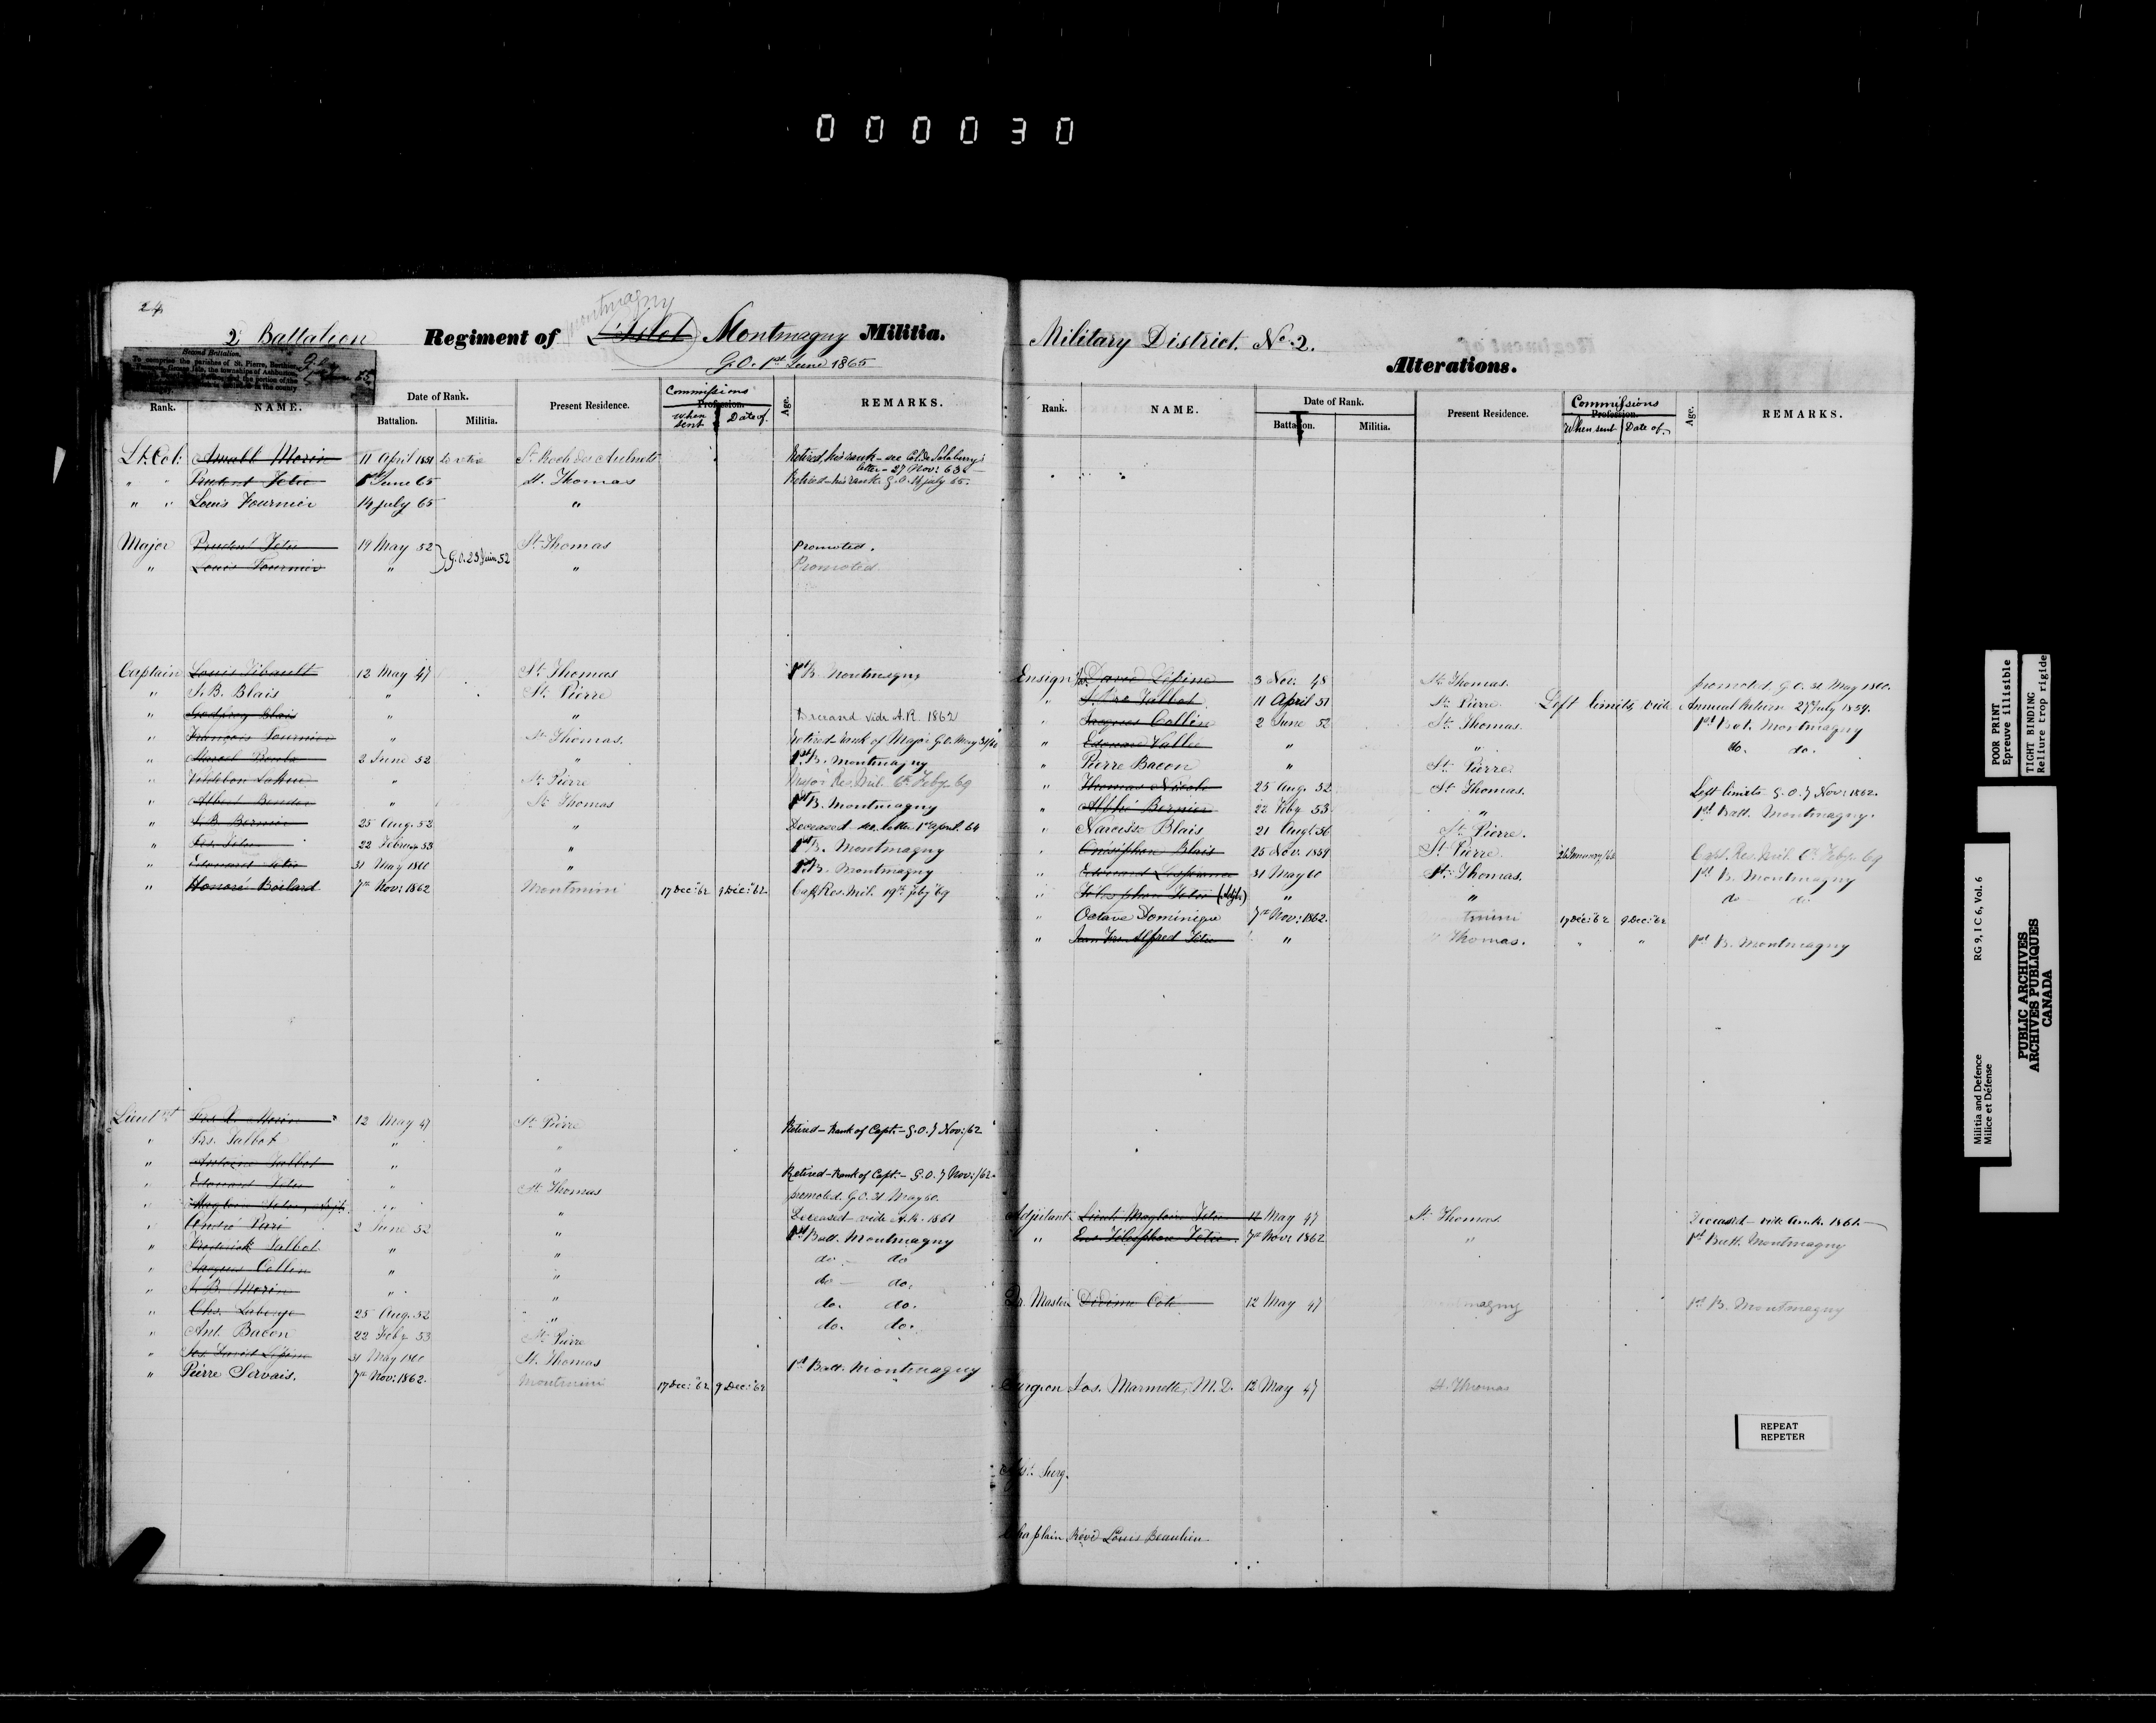 000030
24
Montmagny
2d Battalion Regiment of L'Islet Montmagny Militia.
G.O. 1st June 1865
Second Battalion.
Rank. NAME. Date of Rank. Battalion. Militia. Present Residence. Commissions Profession. When sent Date of. Age. REMARKS.
Lt. Col. Amable Morin 11 April 1851 St. Roch des Aulnets Retired, his rank - see Col. De Salaberry's
letter - 27 Nov: 63
" " Prudent Tetu June 65 St. Thomas Retired - his rank G.O. 14 July 65.
" " Louis Fournier 14 July 65 "
Major Prudent Tetu 19 May 52 St. Thomas Promoted.
" Louis Fournier " " Promoted.
Captain Louis Tibault 12 May 47 St. Thomas 1st B. Montmagny
" J. B. Blais " St. Pierre
" Godfroy Blais " " Deceased vide A.R. 1862
" François Fournier " St. Thomas. Retired - rank of Major G.O. May 31/60
" Marcel 2 June 52 " 1st B. Montmagny
" " St. Pierre Major Res. Mil. 6th Feby. 69
" Albert Bender " St. Thomas 1st B. Montmagny
" J. B. Bernier 25 Aug. 52 " Deceased letter 1st April. 64
" 22 53 " 1st B. Montmagny
" Edouard Tetu 31 May 1860 " 1st B. Montmagny
" Honoré Boilard 7th Nov: 1862 Montmini 17 Dec: '62 9 Dec: '62 Capt. Res. Mil. 19th Feby '69
Lieutnt Morin 12 May 47 St. Pierre Retired - Rank of Capt. - G.O. 7 Nov:/62
" Frs. Talbot " "
" Antoine Talbot " " Retired - Rank of Capt. - G.O. 7 Nov:/62.
" Edouard Tetu " St. Thomas promoted. G.O. 31 May 60.
" Magloire Tetu " " Deceased vide A.R. 1861
" André 2 June 52 " 1st Batt. Montmagny
" Frederick Talbot " " do. do
" Jacques Collin " " do do.
" J. B. Morin " " do. do.
" Chs. Laberge 25 Aug. 52 " do. do.
" Ant. Bacon 22 Feby 53 St. Pierre
" Jos. David Lépine 31 May 1860 St. Thomas 1st Batt. Montmagny
" Pierre Servais. 7th Nov: 1862. Montmini 17 Dec: '62 9 Dec: '62
Military District. No. 2.
Alterations.
Rank. NAME. Date of Rank. Battalion. Militia. Present Residence. Commissions Profession. When sent Date of. Age. REMARKS.
Ensign David Lépine 3 Nov. 48 St. Thomas. promoted, G.O. 31 May 1860.
" Talbot 11 April 51 St. Pierre Left limits, vide Annual Return 27 July 1859.
" Jacques Collin 2 June 52 St. Thomas. 1st Bat. Montmagny
" Edouard Vallée " " do. do.
" Pierre Bacon " St. Pierre
" Thomas Nicole 25 Aug. 52 St. Thomas. Left limits G.O. 7 Nov: 1862.
" Bernier 22 Feby 53 " 1st Batt. Montmagny.
" Narcisse Blais 21 Augt 56 St. Pierre.
" Onésiphore Blais 25 Nov. 1859 St. Pierre. Capt. Res. Mil. 6th Feby. 69
" Edouard Lespérance 31 May 60 St. Thomas. 1st B. Montmagny
" Telesphore Tetu (Adjt.) " " do do.
" Octave Dominique 7th Nov: 1862. 17 Dec: '62 9 Dec: '62
" Alfred Tetu " Thomas. " " 1st B. Montmagny
Adjutant Lieut. Magloire Tetu 12 May 47 St. Thomas. Deceased - vide An. R. 1861.
" Ens. Telesphore Tetu. 7th Nov: 1862 " 1st Batt. Montmagny
Qr. Master Côté 12 May 47 1st B. Montmagny
Surgeon Jos. Marmette, M.D. 12 May 47 St. Thomas
Asst. Surg.
Chaplain Revd Louis Beaulieu
POOR PRINT
Epreuve illisible
TIGHT BINDING
Reliure trop rigide
Militia and Defence RG 9, I C 6, Vol. 6
Milice et Défense
PUBLIC ARCHIVES
ARCHIVES PUBLIQUES
CANADA
REPEAT
REPETER